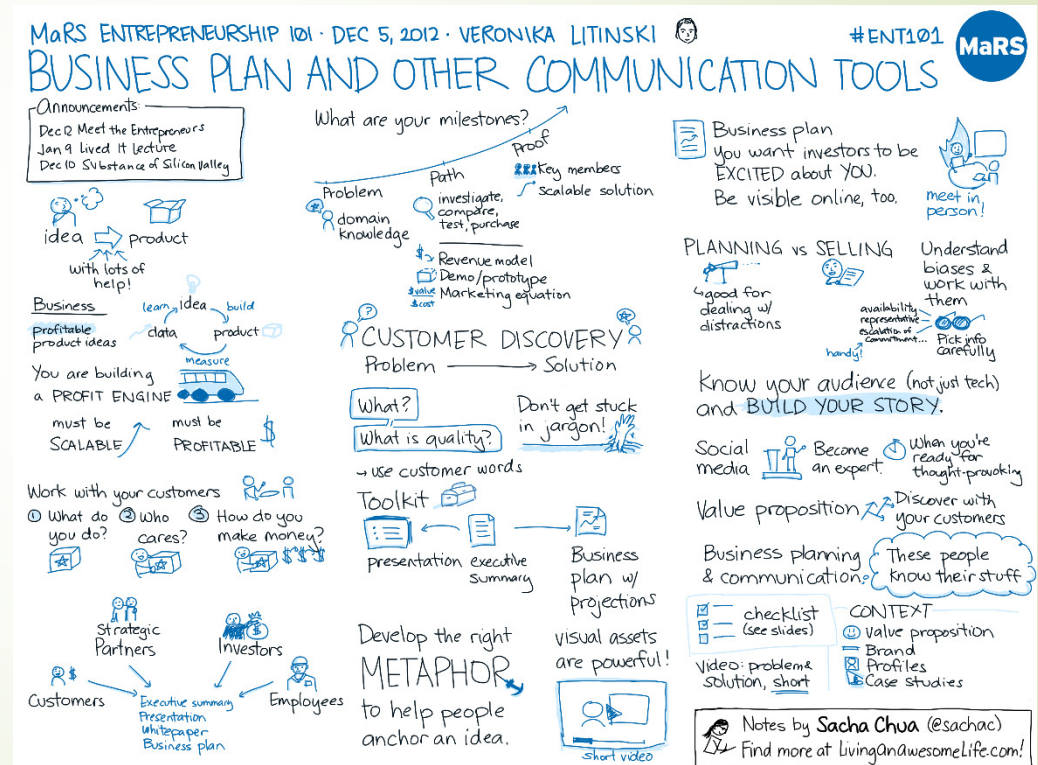 MaRS ENTREPRENEURSHIP 101 · DEC 5, 2012 · VERONIKA LITINSKI
#ENT101
MaRS
BUSINESS PLAN AND OTHER COMMUNICATION TOOLS
Announcements:
Dec 12 Meet the Entrepreneurs
Jan 9 Lived It Lecture
Dec 10 Substance of Silicon Valley
idea
product
with lots of
help!
Business
profitable
product ideas
learn
idea
build
data
product
measure
You are building
a PROFIT ENGINE
must be
SCALABLE
must be
PROFITABLE
$
Work with your customers
① What do
you do?
② Who
cares?
③ How do you
make money?
$$$$
Strategic
Partners
Investors
$
Customers
$
Employees
Executive summary
Presentation
Whitepaper
Business plan
What are your milestones?
Problem
domain
knowledge
Path
investigate,
compare,
test, purchase
Proof
Key members
Scalable solution
$ Revenue model
Demo/prototype
$value
$cost
Marketing equation
?
CUSTOMER DISCOVERY
Problem
Solution
What?
What is quality?
Don't get stuck
in jargon!
→ use customer words
Toolkit
presentation
executive
summary
Business
plan w/
projections
Develop the right
METAPHOR
to help people
anchor an idea.
visual assets
are powerful!
short video
Business plan
You want investors to be
EXCITED about YOU.
Be visible online, too.
meet in
person!
PLANNING vs SELLING
good for
dealing w/
distractions
Understand
biases &
work with
them
availability
representative
escalation of
commitment...
handy!
Pick info
carefully
Know your audience (not just tech)
and BUILD YOUR STORY.
Social
media
Become
an expert
When you're
ready for
thought-provoking
Value proposition
Discover with
your customers
Business planning
& communication
These people
know their stuff
checklist
(see slides)
Video: problem &
solution, short
CONTEXT
Value proposition
Brand
Profiles
Case studies
Notes by Sacha Chua (@sachac)
Find more at LivingAnAwesomeLife.com!